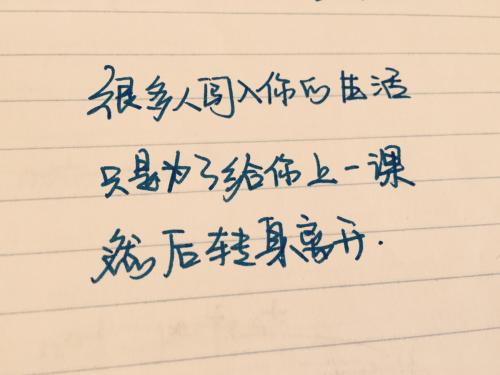 很多人闯入你的生活
只是为了给你上一课
然后转身离开.